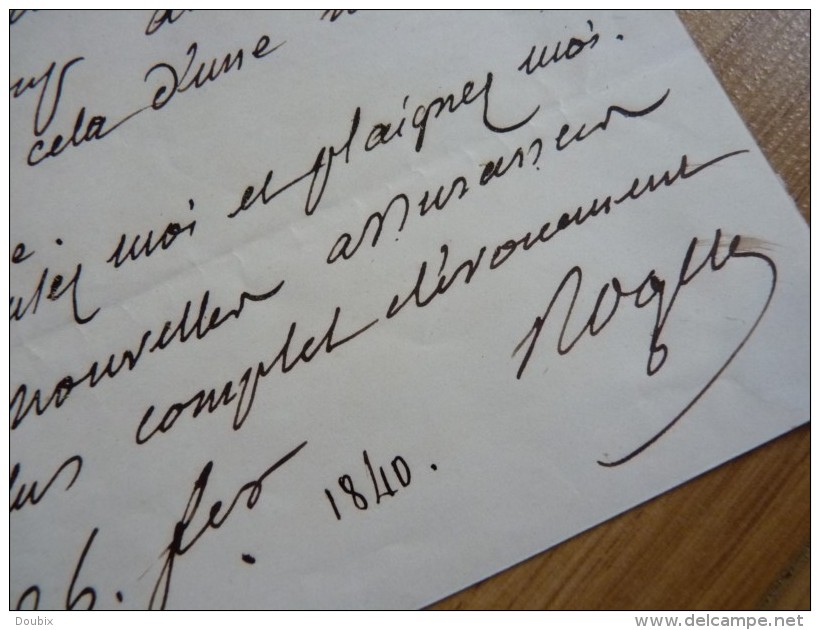 cela d'une
e.
moi et plaignez moi.
nouvelles assurances
complet dévouement
26. fev 1840.
Doubix
www.delcampe.net